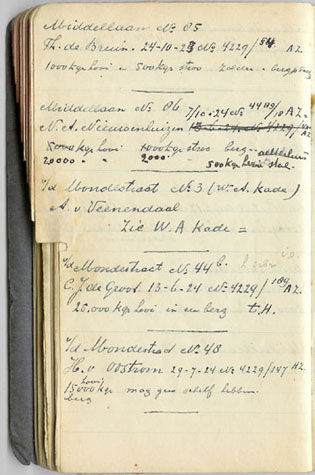 Middellaan No 85
Th. de Bruin. 24-10-23 No 4229/54 AZ.
1000 kgr hooi en 500 kgr stroo
Middellaan No 86 7/10-24 No AZ.
N. A. Nieuwenhuizen
5000 kgr hooi 1000 kgr stroo berg
20000 " " 2000 " 500 kgr hooi stal
v/d Mondestraat No 3 (W. A. Kade)
A. v Veenendaal
Zie W. A Kade =
v/d Mondestraat No 44 b.
C. J. de Groot 13-6-24 No 4229/109 AZ.
25.000 kgr hooi in een berg t.H.
v/d Mondestraat No 48
H. v. Oostrom 29-7-24 No 4229/147 AZ
hooi
15000 kgr mag geen schelf hebben
berg